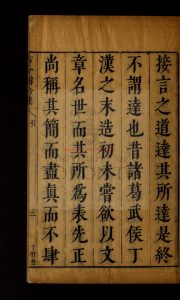 接言之道達其所達是終
不謂達也昔諸葛武侯丁
漢之末造初未嘗欲以文
章名世而其所爲表先正
尚稱其簡而盡眞而不肆
引
三